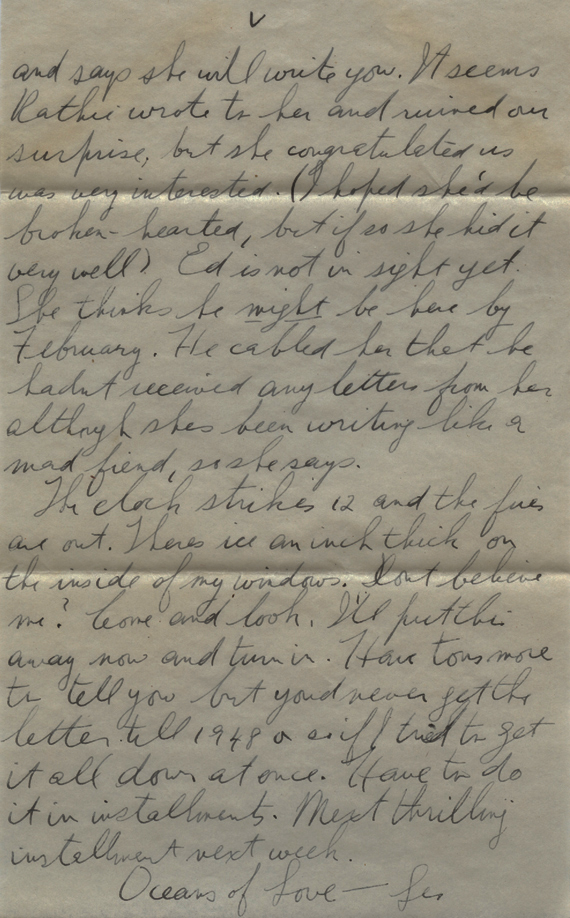 V
and says she will write you. It seems
Kathie wrote to her and ruined our
surprise, but she congratulated us
was very interested. (I hoped she'd be
broken-hearted, but if so she hid it
very well) Ed is not in sight yet.
She thinks he might be here by
February. He cabled her that he
hadnt received any letters from her
although shes been writing like a
mad fiend, so she says.
The clock strikes 12 and the fires
are out. Theres ice an inch thick on
the inside of my windows. Dont believe
me? Come and look. I'll put this
away now and turn in. Have tons more
to tell you but youd never get the
letter till 1948 or so if I tried to get
it all down at once. Have to do
it in installments. Next thrilling
installment next week.
Oceans of Love —